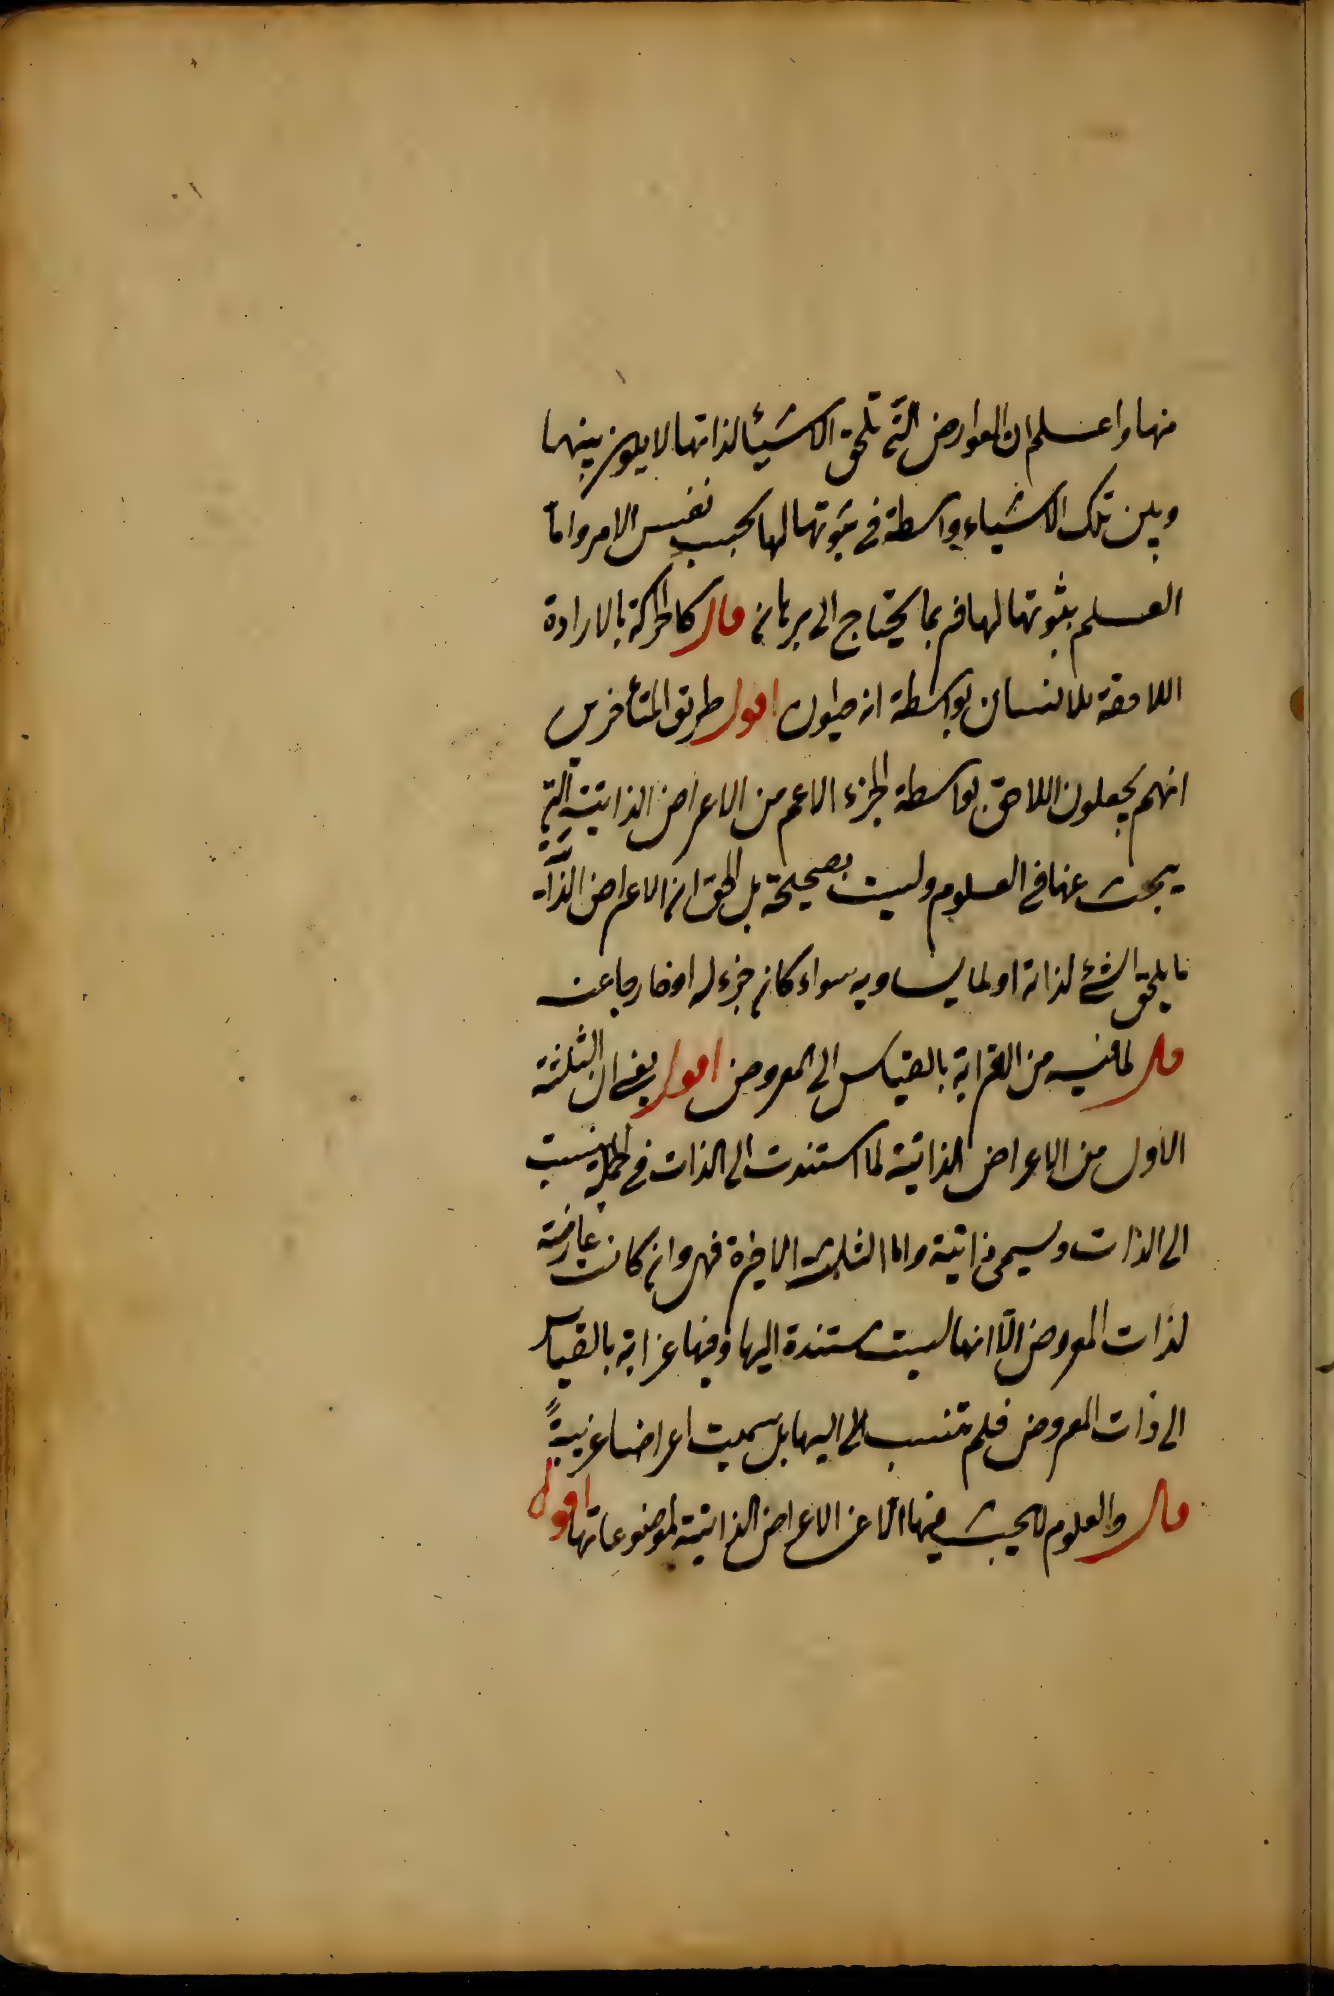 منها واعلم ان العوارض التى تلحق الاشياء لذاتها لا يكون بينها
وبين تلك الاشياء واسطة فى ثبوتها لها بحسب نفس الامر واما
العلم بثبوتها لها فربما يحتاج الى برهان قال كالحركة بالارادة
اللاحقة للانسان بواسطة انه حيوان اقول طريق المتأخرين
انهم يجعلون اللاحق بواسطة الجزء الاعم من الاعراض الذاتية التى
يبحث عنها فى العلوم وليست بصحيحة بل الحق ان الاعراض الذاتية
ما يلحق الشئ لذاته او لما يساويه سواء كان جزء له او خارجا عنه
قال لما فيه من الغرابة بالقياس الى المعروض اقول يعنى ان الثلثة
الاول من الاعراض الذاتية لما استندت الى الذات فى الجملة نسبت
الى الذات ويسمى ذاتية واما الثلثة الاخيرة فهى وان كانت عارضة
لذات المعروض الا انها ليست مستندة اليها وفيها غرابة بالقياس
الى ذات المعروض فلم تنسب الى اليها بل سميت اعراضا غريبةً
قال والعلوم لا يبحث فيها الا عن الاعراض الذاتية لموضوعاتها اقول